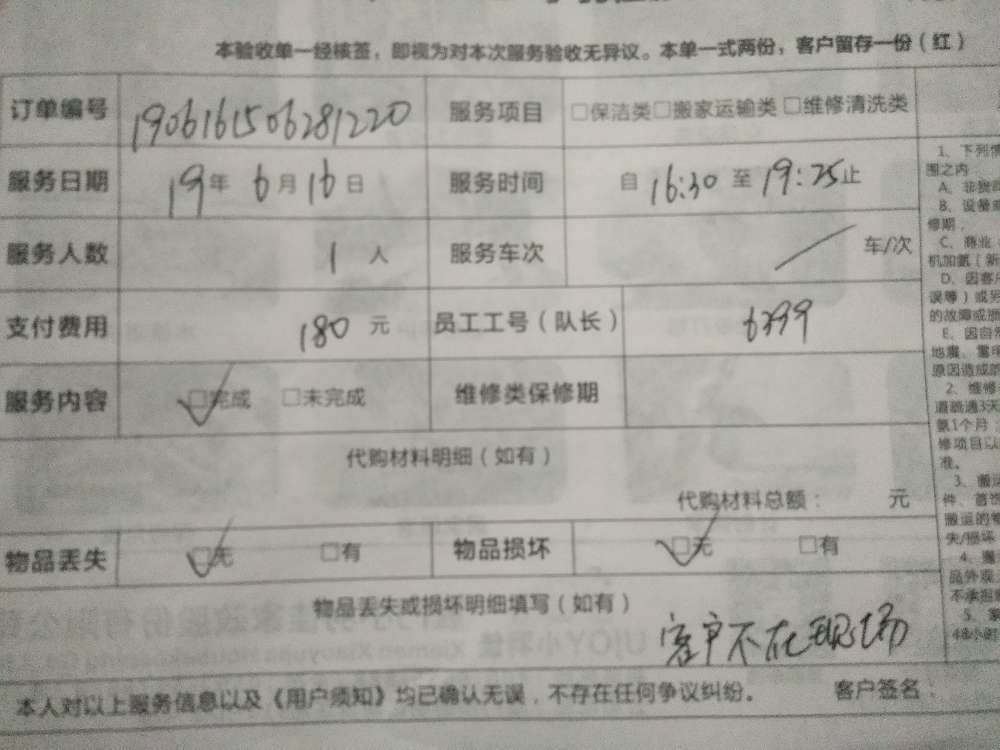 本验收单一经核签，即视为对本次服务验收无异议。本单一式两份，客户留存一份（红）
订单编号 1906161506281220 服务项目 □保洁类□搬家运输类 □维修清洗类
服务日期 19年 6月16日 服务时间 自 16:30 至 19:25止
服务人数 1 人 服务车次 / 车/次
支付费用 180 元 员工工号（队长） 6399
服务内容 ☑完成 □未完成 维修类保修期
代购材料明细（如有）
代购材料总额： 元
物品丢失 ☑无 □有 物品损坏 ☑无 □有
物品丢失或损坏明细填写（如有）
客户不在现场
本人对以上服务信息以及《用户须知》均已确认无误，不存在任何争议纠纷。 客户签名：
1、下列情
围之内
B、设备
修期，
C、商业
机加氨（新
D、因客
误等）或
的故障或
E、因自然
地震、雷
原因造成
2、维修
道疏通3天
氨1个月；
修项目以
准。
3、搬
件、首
搬运的
失/损坏
4、
品外
不承担
5、家
48小时